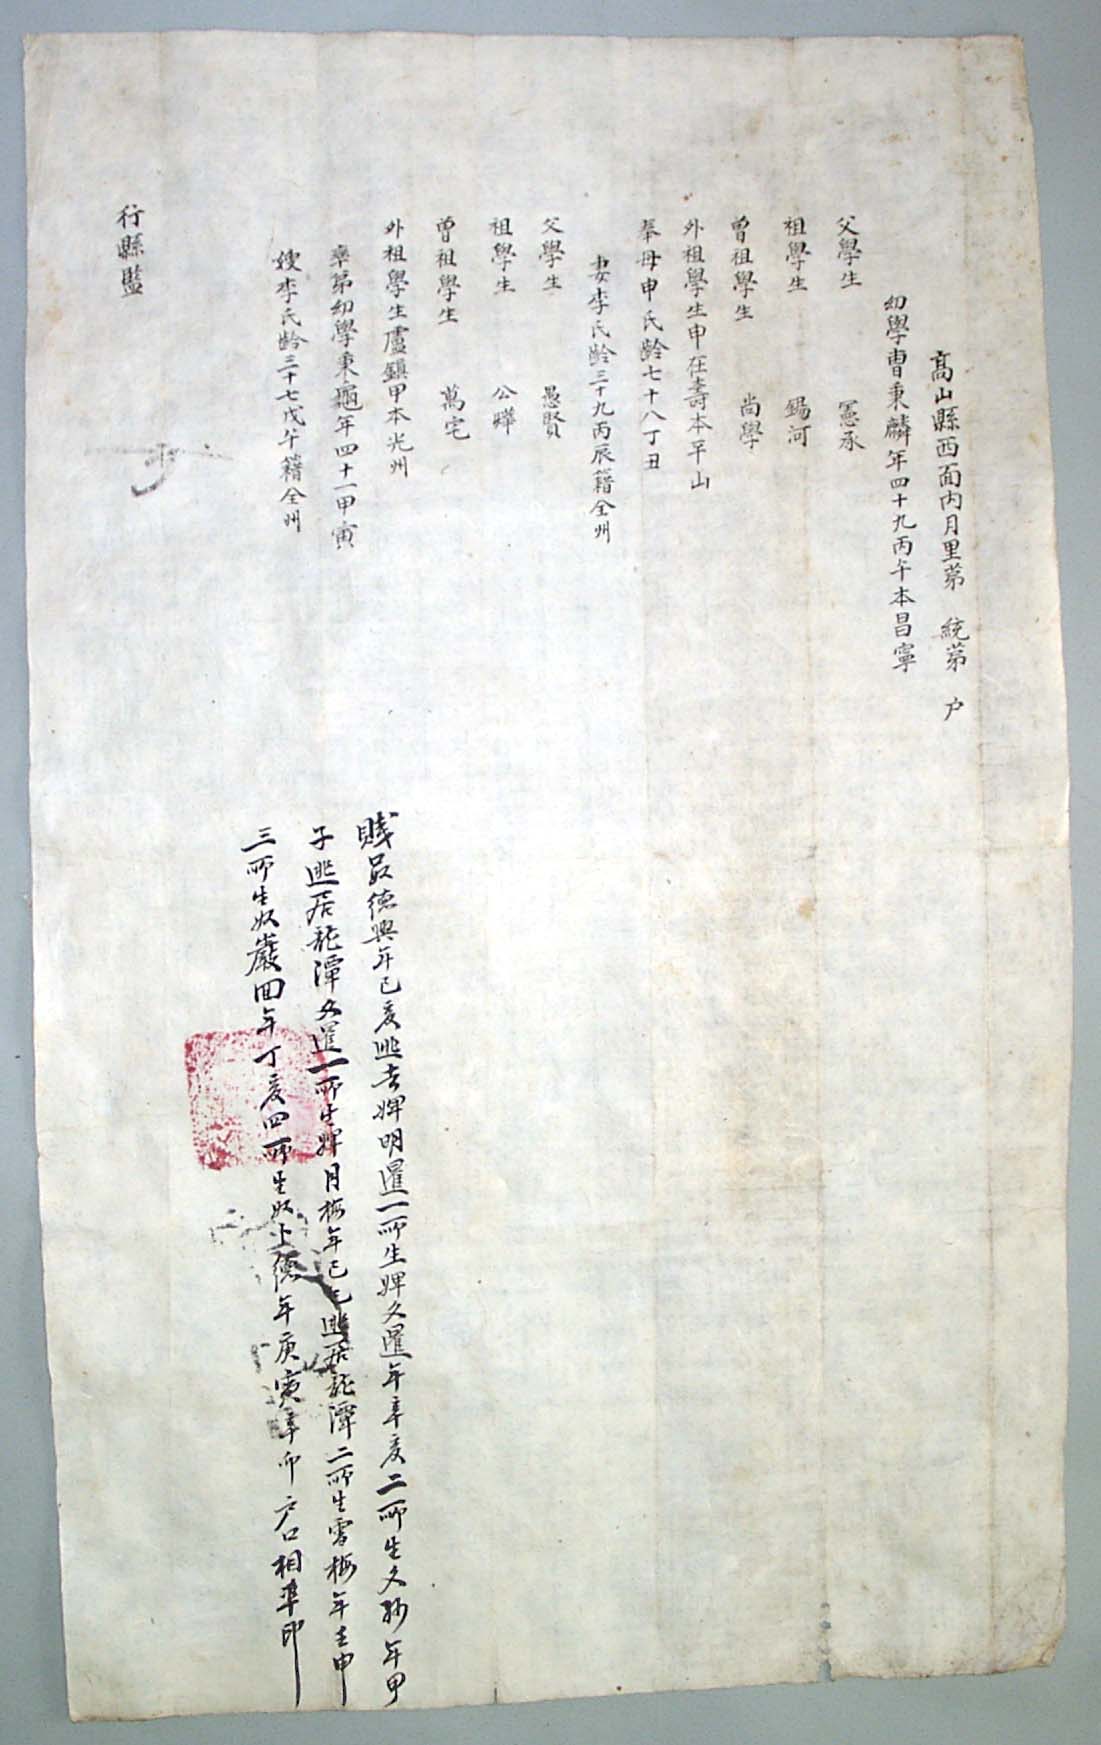 高山縣西面內月里第 統第 户
幼學曺秉麟年四十九丙午本昌寧
父學生 憲承
祖學生 錫河
曾祖學生 尚學
外祖學生申在壽本平山
奉母申氏齡七十八丁丑
妻李氏齡三十九丙辰籍全州
父學生 愚賢
祖學生 公曄
曾祖學生 萬宅
外祖學生盧鎭甲本光州
率弟幼學秉龜年四十一甲寅
嫂李氏齡三十七戊午籍全州
行縣監
賤口德興年己亥逃去婢明暹一所生婢久暹年辛亥二所生久孙年甲
子逃居龍潭久暹一所生婢月梅年己巳逃居龍潭二所生雪梅年壬申
三所生奴巖回年丁亥四所生奴上德年庚寅辛卯户口相準印